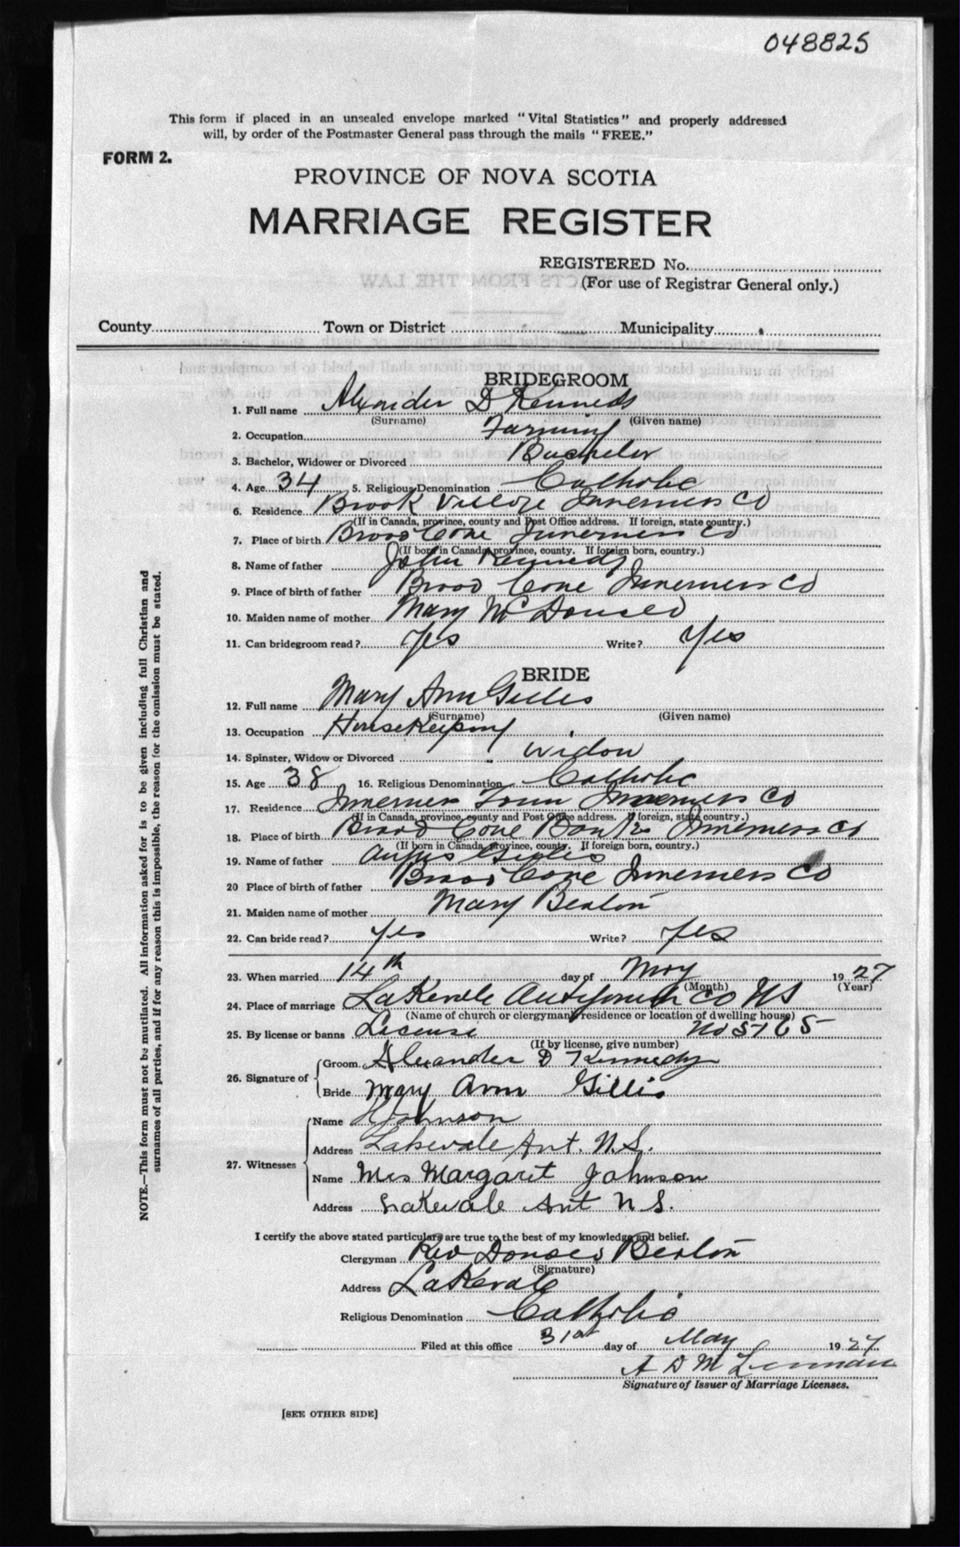 048825
This form if placed in an unsealed envelope marked "Vital Statistics" and properly addressed
will, by order of the Postmaster General pass through the mails "FREE."
FORM 2.
PROVINCE OF NOVA SCOTIA
MARRIAGE REGISTER
REGISTERED No.
(For use of Registrar General only.)
County Town or District Municipality
BRIDEGROOM
1. Full name Alxander D Kennedy
(Surname) (Given name)
2. Occupation Farming
3. Bachelor, Widower or Divorced Bachelor
4. Age 34 5. Religious Denomination Catholic
6. Residence Brook Village Inverness Co
(If in Canada, province, county and Post Office address. If foreign, state country.)
7. Place of birth Broad Cove Inverness Co
(If born in Canada, province, county. If foreign born, country.)
8. Name of father John Kennedy
9. Place of birth of father Broad Cove Inverness Co
10. Maiden name of mother Mary McDonald
11. Can bridegroom read? Yes Write? Yes
BRIDE
12. Full name Mary Ann Gillis
(Surname) (Given name)
13. Occupation HouseKeeping
14. Spinster, Widow or Divorced Widow
15. Age 38 16. Religious Denomination Catholic
17. Residence Inverness Town Inverness Co
(If in Canada, province, county and Post Office address. If foreign, state country.)
18. Place of birth Broad Cove Banks Inverness Co
(If born in Canada, province, county. If foreign born, country.)
19. Name of father Angus Gillis
20 Place of birth of father Broad Cove Inverness Co
21. Maiden name of mother Mary Beaton
22. Can bride read? Yes Write? Yes
23. When married 14th day of May 1927
(Month) (Year)
24. Place of marriage LaKevale Antigonish Co NS
(Name of church or clergyman's residence or location of dwelling house)
25. By license or banns License No 5765
(If by license, give number)
26. Signature of Groom Alexander D Kennedy
Bride Mary Ann Gillis
27. Witnesses Name Johnson
Address Lakevale Ant. N.S.
Name Mrs Margaret Johnson
Address Lakevale Ant N S.
I certify the above stated particulars are true to the best of my knowledge and belief.
Clergyman Rev Donald Beaton
(Signature)
Address LaKevale
Religious Denomination Catholic
Filed at this office 31st day of May 1927
A D M
Signature of Issuer of Marriage Licenses.
[SEE OTHER SIDE]
NOTE.—This form must not be mutilated. All information asked for is to be given including full Christian and
surnames of all parties, and if for any reason this is impossible, the reason for the omission must be stated.